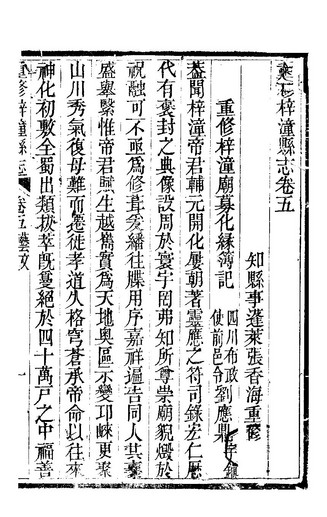 梓潼縣志卷五
知縣事蓬萊張香海重
重修梓潼廟募化緣簿記
四川布政使前邑令劉應鼎
蓋聞梓潼帝君輔元開化屢朝著靈應之符司錄宏仁歷
代有褒封之典像設周於寰宇罔弗知所尊崇廟貌燬於
祝融可不亟爲修葺爰繙往牒用序嘉祥遍告同人共襄
盛舉繄惟帝君賦生越嶲質爲天地奧區示變邛崍更聚
山川秀氣復母難而甍徙孝道久格穹蒼承帝命以往來
神化初敷全蜀出類拔萃旣夐絕於四十萬戶之中福善
重修梓潼縣志 卷五藝文 一